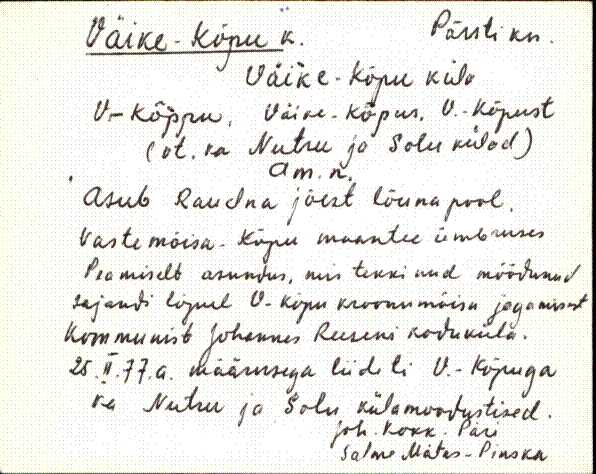 Väike-Kõpu k. Pärsti kn.
Väike-Kõpu küla
V-Kõppu, Väike-Kõpus, V.-Kõpust
(vt. ka Nutru ja Solu külad)
am.n.
Asub Raudna jõest lõuna pool,
Vastemõisa-Kõpu maantee ümbruses
Peamiselt asundus, mis tekkinud möödunud
sajandi lõpul V-Kõpu kroonumõisa jagamisest
Kommunist Johannes Reeseni koduküla.
25.II.77.a. määrusega liideti V.-Kõpuga
ka Nutru ja Solu külamoodustised.
Joh. Kokk. Päri
Salme Mätas-Pinska